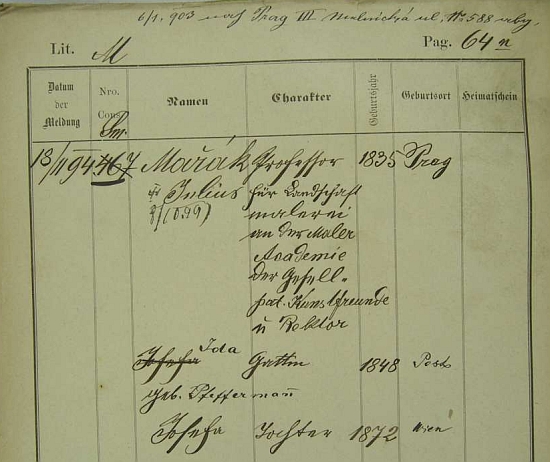 6/1. 903 nach Prag III Melnická ul. Nr. 588 abg.
Lit. M Pag. 64
Datum der Meldung Nro. Cons. Namen Charakter Geburtsjahr Geburtsort Heimatschein
13/II 94 467 Mařák Professor 1835 Prag
Julius für Landschaft
malerei
an der Maler
Academie
der Gesell-
pat. Kunstfreunde
u Rektor
Josefa Ida Gattin 1848 Pest
geb. Pfeffermann
Josefa Tochter 1872 Wien